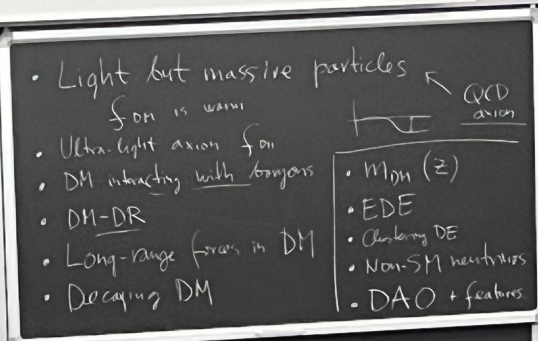 • Light but massive particles
f DM is warm
• Ultra-light axion f DM
• DM interacting with baryons
• DM-DR
• Long-range forces in DM
• Decaying DM
QCD
axion
• m DM (z)
• EDE
• Clustering DE
• Non-SM neutrinos
• DAO + features